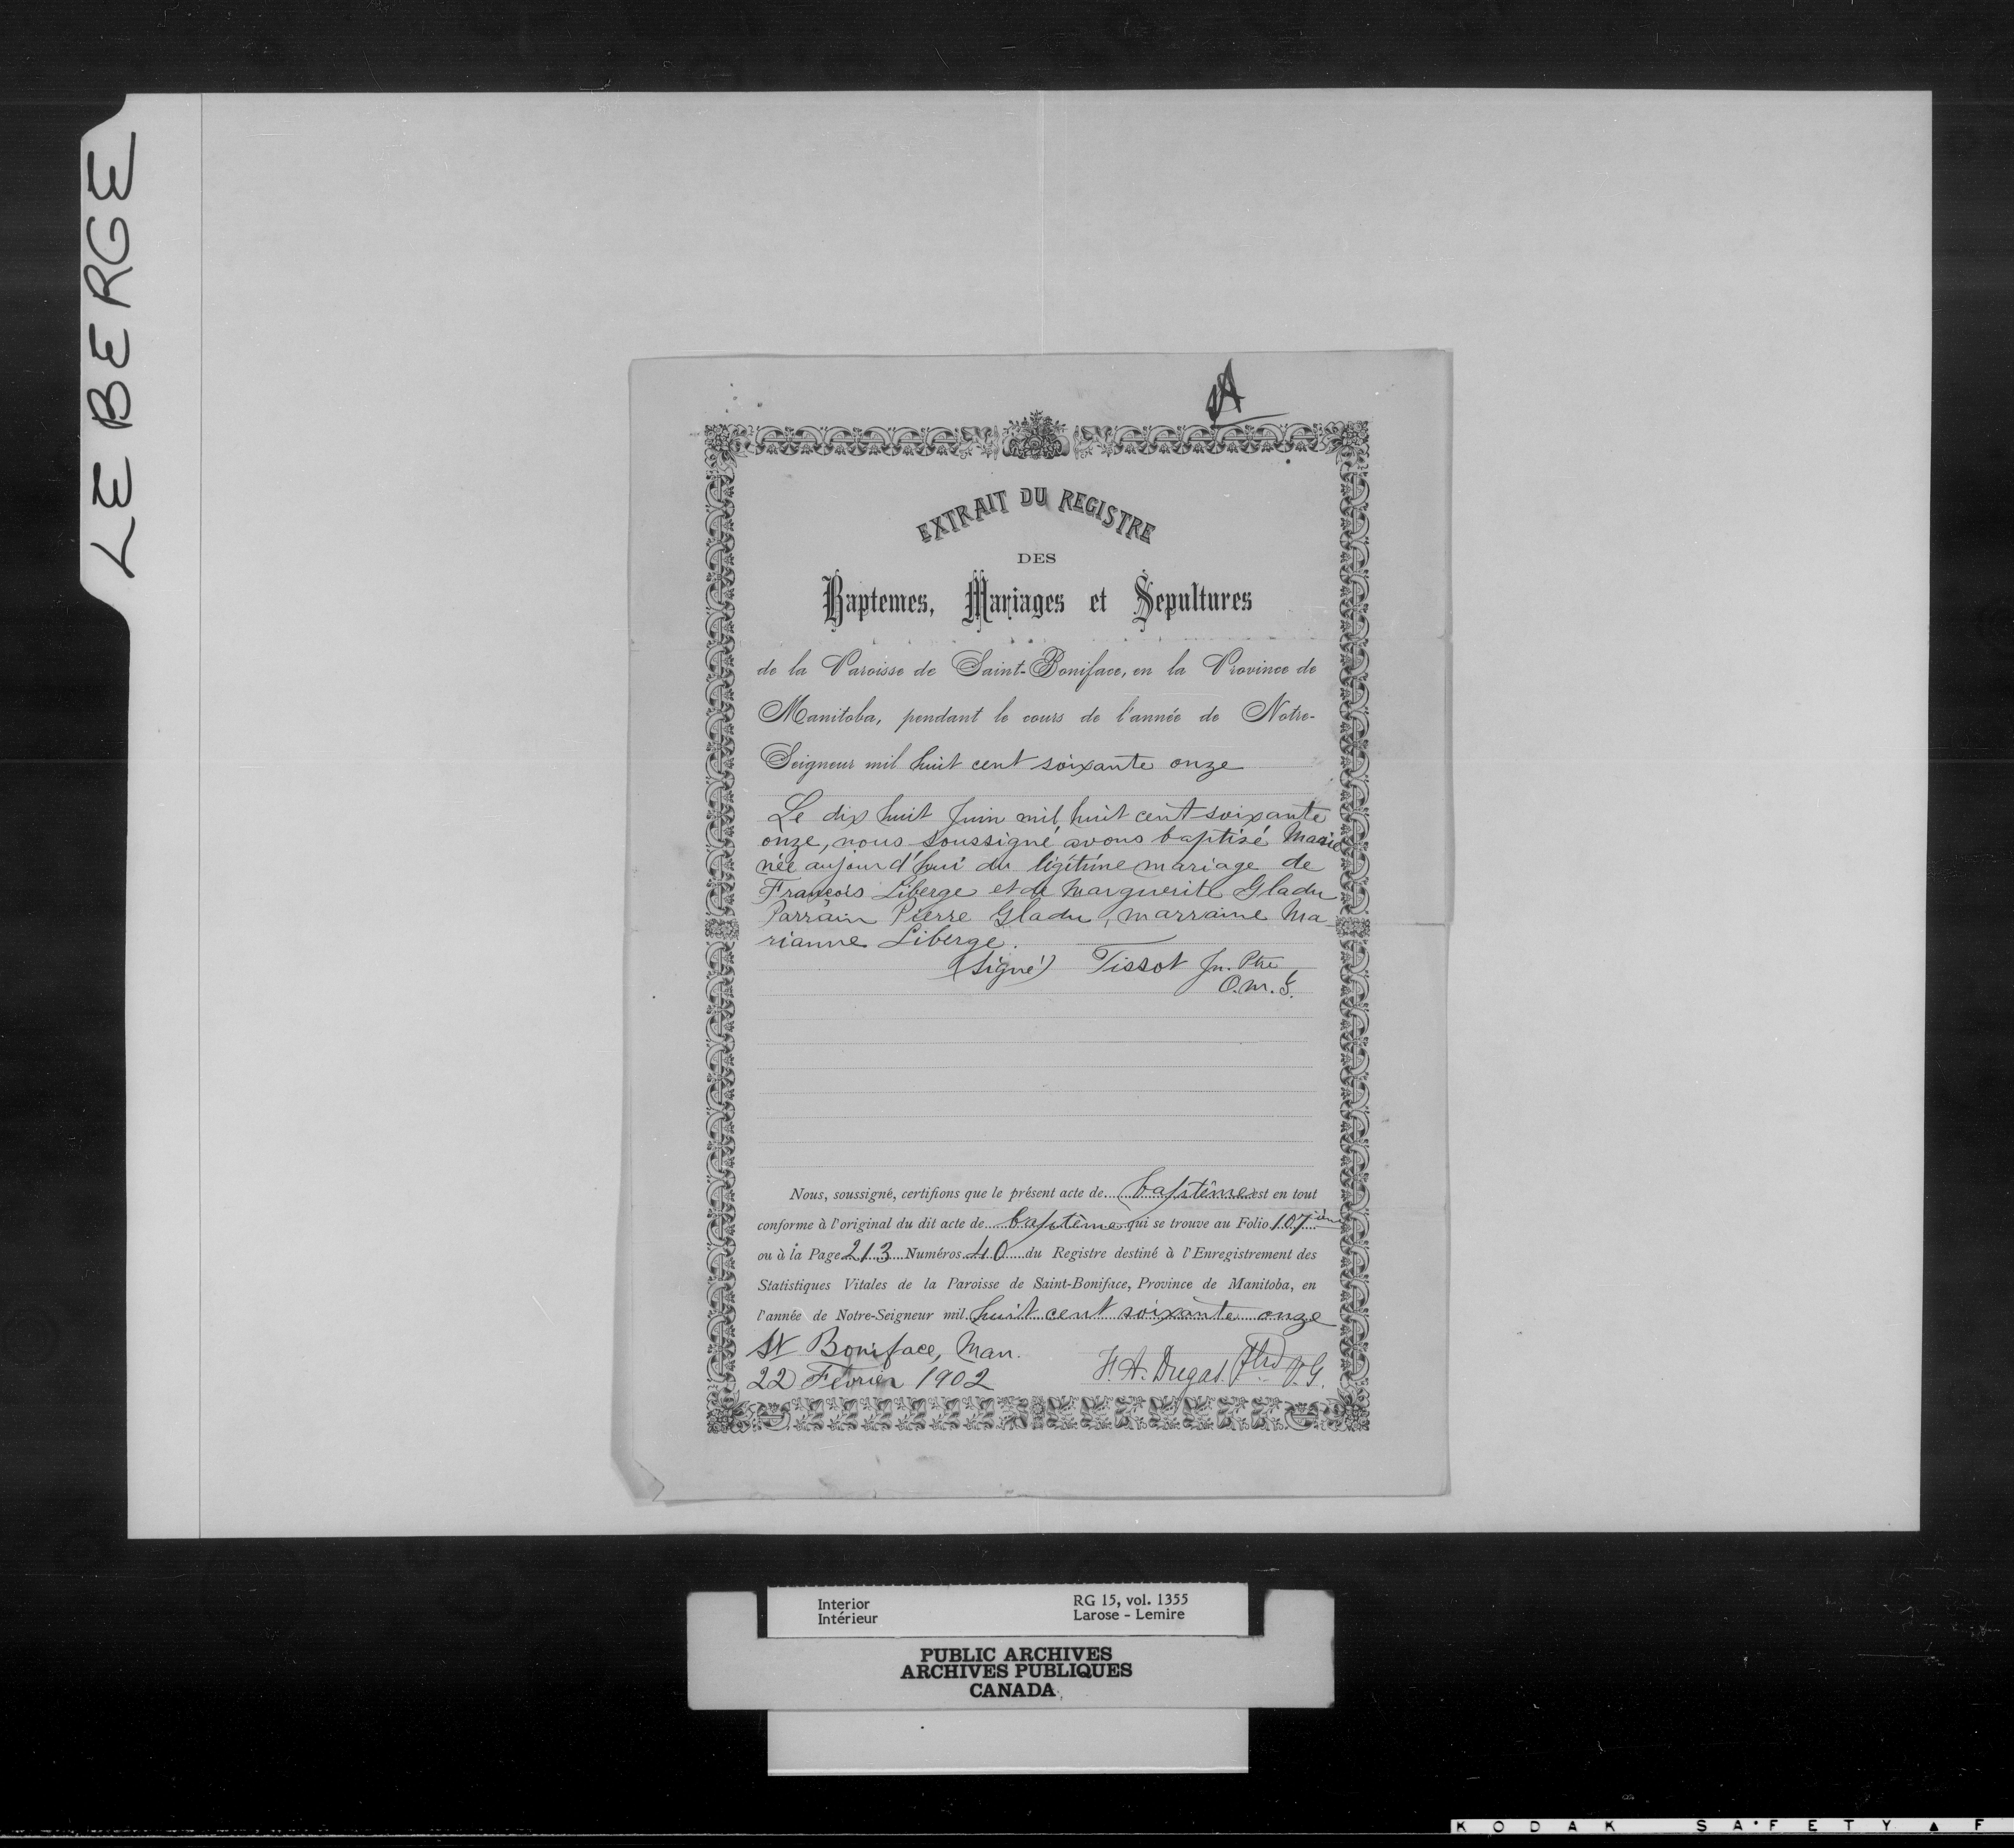 LEBERGE
A
EXTRAIT DU REGISTRE
DES
Baptemes, Mariages et Sepultures
de la Paroisse de Saint-Boniface, en la Province de
Manitoba, pendant le cours de l'année de Notre-
Seigneur mil huit cent soixante onze
Le dix huit Juin mil huit cent soixante
onze, nous soussigné avons baptisé Marie
née aujourd'hui du légitime mariage de
François Liberge et de Marguerite Gladu
Parrain Pierre Gladu, marraine Ma-
rianne Liberge.
(Signé) Tissot Jn. Ptre
O.M.I.
Nous, soussigné, certifions que le présent acte de baptême est en tout
conforme à l'original du dit acte de baptême qui se trouve au Folio 107ième
ou à la Page 213 Numéros 40 du Registre destiné à l'Enregistrement des
Statistiques Vitales de la Paroisse de Saint-Boniface, Province de Manitoba, en
l'année de Notre-Seigneur mil huit cent soixante onze
St Boniface, Man.
22 Février 1902
F. A. Dugas. Ptre V.G.
Interior
Intérieur
RG 15, vol. 1355
Larose - Lemire
PUBLIC ARCHIVES
ARCHIVES PUBLIQUES
CANADA
KODAK SAFETY ▲ F